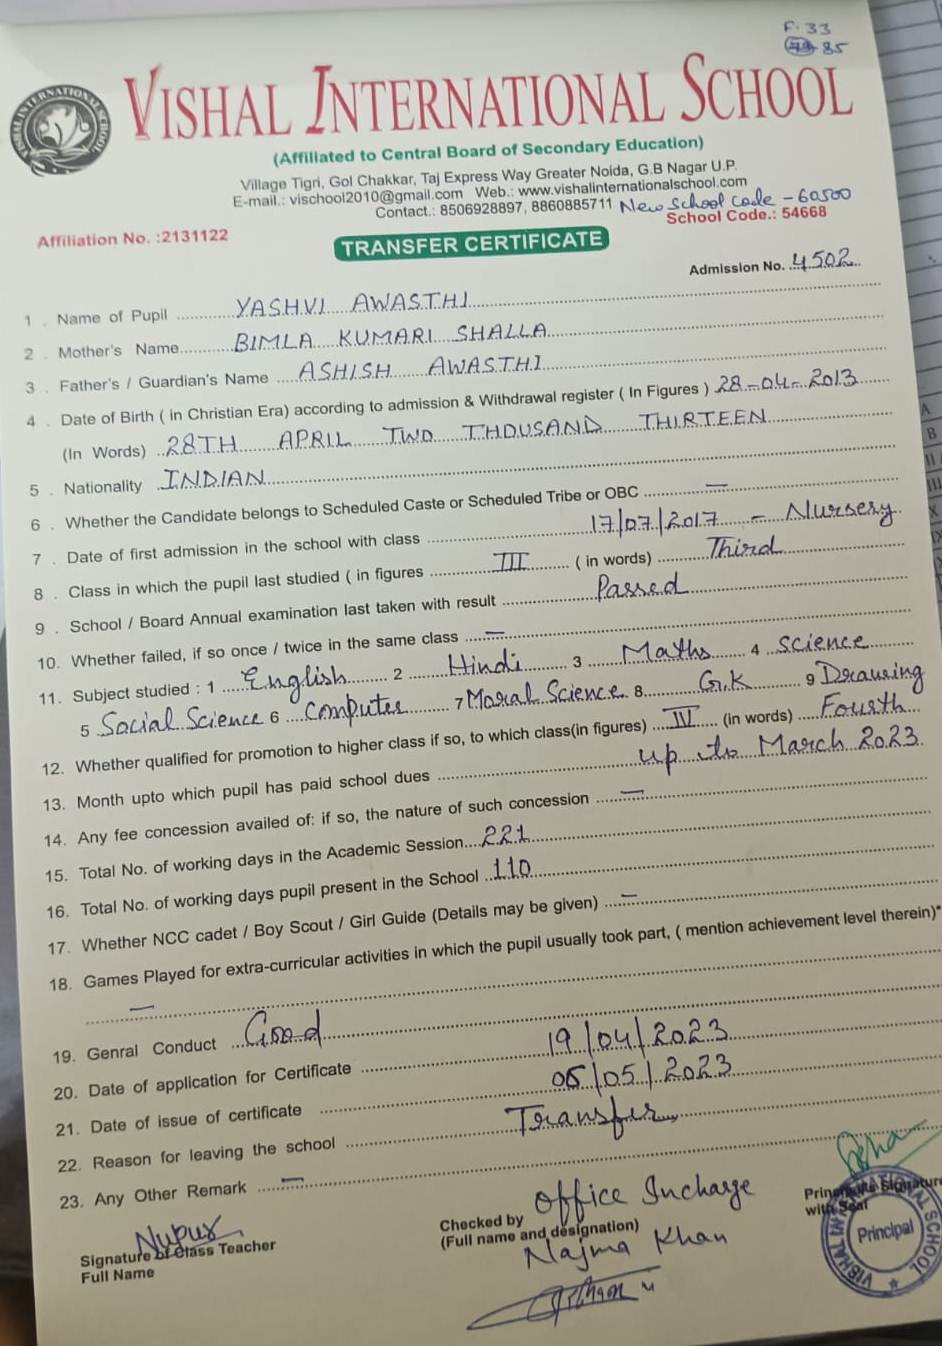 F. 33
85
VISHAL INTERNATIONAL SCHOOL
VISHAL INTERNATIONAL SCHOOL
(Affiliated to Central Board of Secondary Education)
Village Tigri, Gol Chakkar, Taj Express Way Greater Noida, G.B Nagar U.P.
E-mail.: vischool2010@gmail.com Web.: www.vishalinternationalschool.com
Contact.: 8506928897, 8860885711 New School Code - 60500
Affiliation No. :2131122 School Code.: 54668
TRANSFER CERTIFICATE
Admission No. 4502
1 . Name of Pupil YASHVI AWASTHI
2 . Mother's Name BIMLA KUMARI SHALLA
3 . Father's / Guardian's Name ASHISH AWASTHI
4 . Date of Birth ( in Christian Era) according to admission & Withdrawal register ( In Figures ) 28-04-2013
(In Words) 28TH APRIL TWO THOUSAND THIRTEEN
5 . Nationality INDIAN
6 . Whether the Candidate belongs to Scheduled Caste or Scheduled Tribe or OBC —
7 . Date of first admission in the school with class 17/07/2017 - Nursery
8 . Class in which the pupil last studied ( in figures III ( in words) Third
9 . School / Board Annual examination last taken with result Passed
10. Whether failed, if so once / twice in the same class —
11. Subject studied : 1 English 2 Hindi 3 Maths 4 Science
5 Social Science 6 Computer 7 Moral Science 8 G.K 9 Drawing
12. Whether qualified for promotion to higher class if so, to which class(in figures) IV (in words) Fourth
13. Month upto which pupil has paid school dues up to March 2023
14. Any fee concession availed of: if so, the nature of such concession —
15. Total No. of working days in the Academic Session 221
16. Total No. of working days pupil present in the School 110
17. Whether NCC cadet / Boy Scout / Girl Guide (Details may be given) —
18. Games Played for extra-curricular activities in which the pupil usually took part, ( mention achievement level therein)*
—
19. Genral Conduct Good
20. Date of application for Certificate 19/04/2023
21. Date of issue of certificate 05/05/2023
22. Reason for leaving the school Transfer
23. Any Other Remark —
Nupur
Signature of Class Teacher
Full Name
Checked by Office Incharge
(Full name and designation)
Najma Khan
Principal's Signature
with Seal
VISHAL INTERNATIONAL SCHOOL
Principal